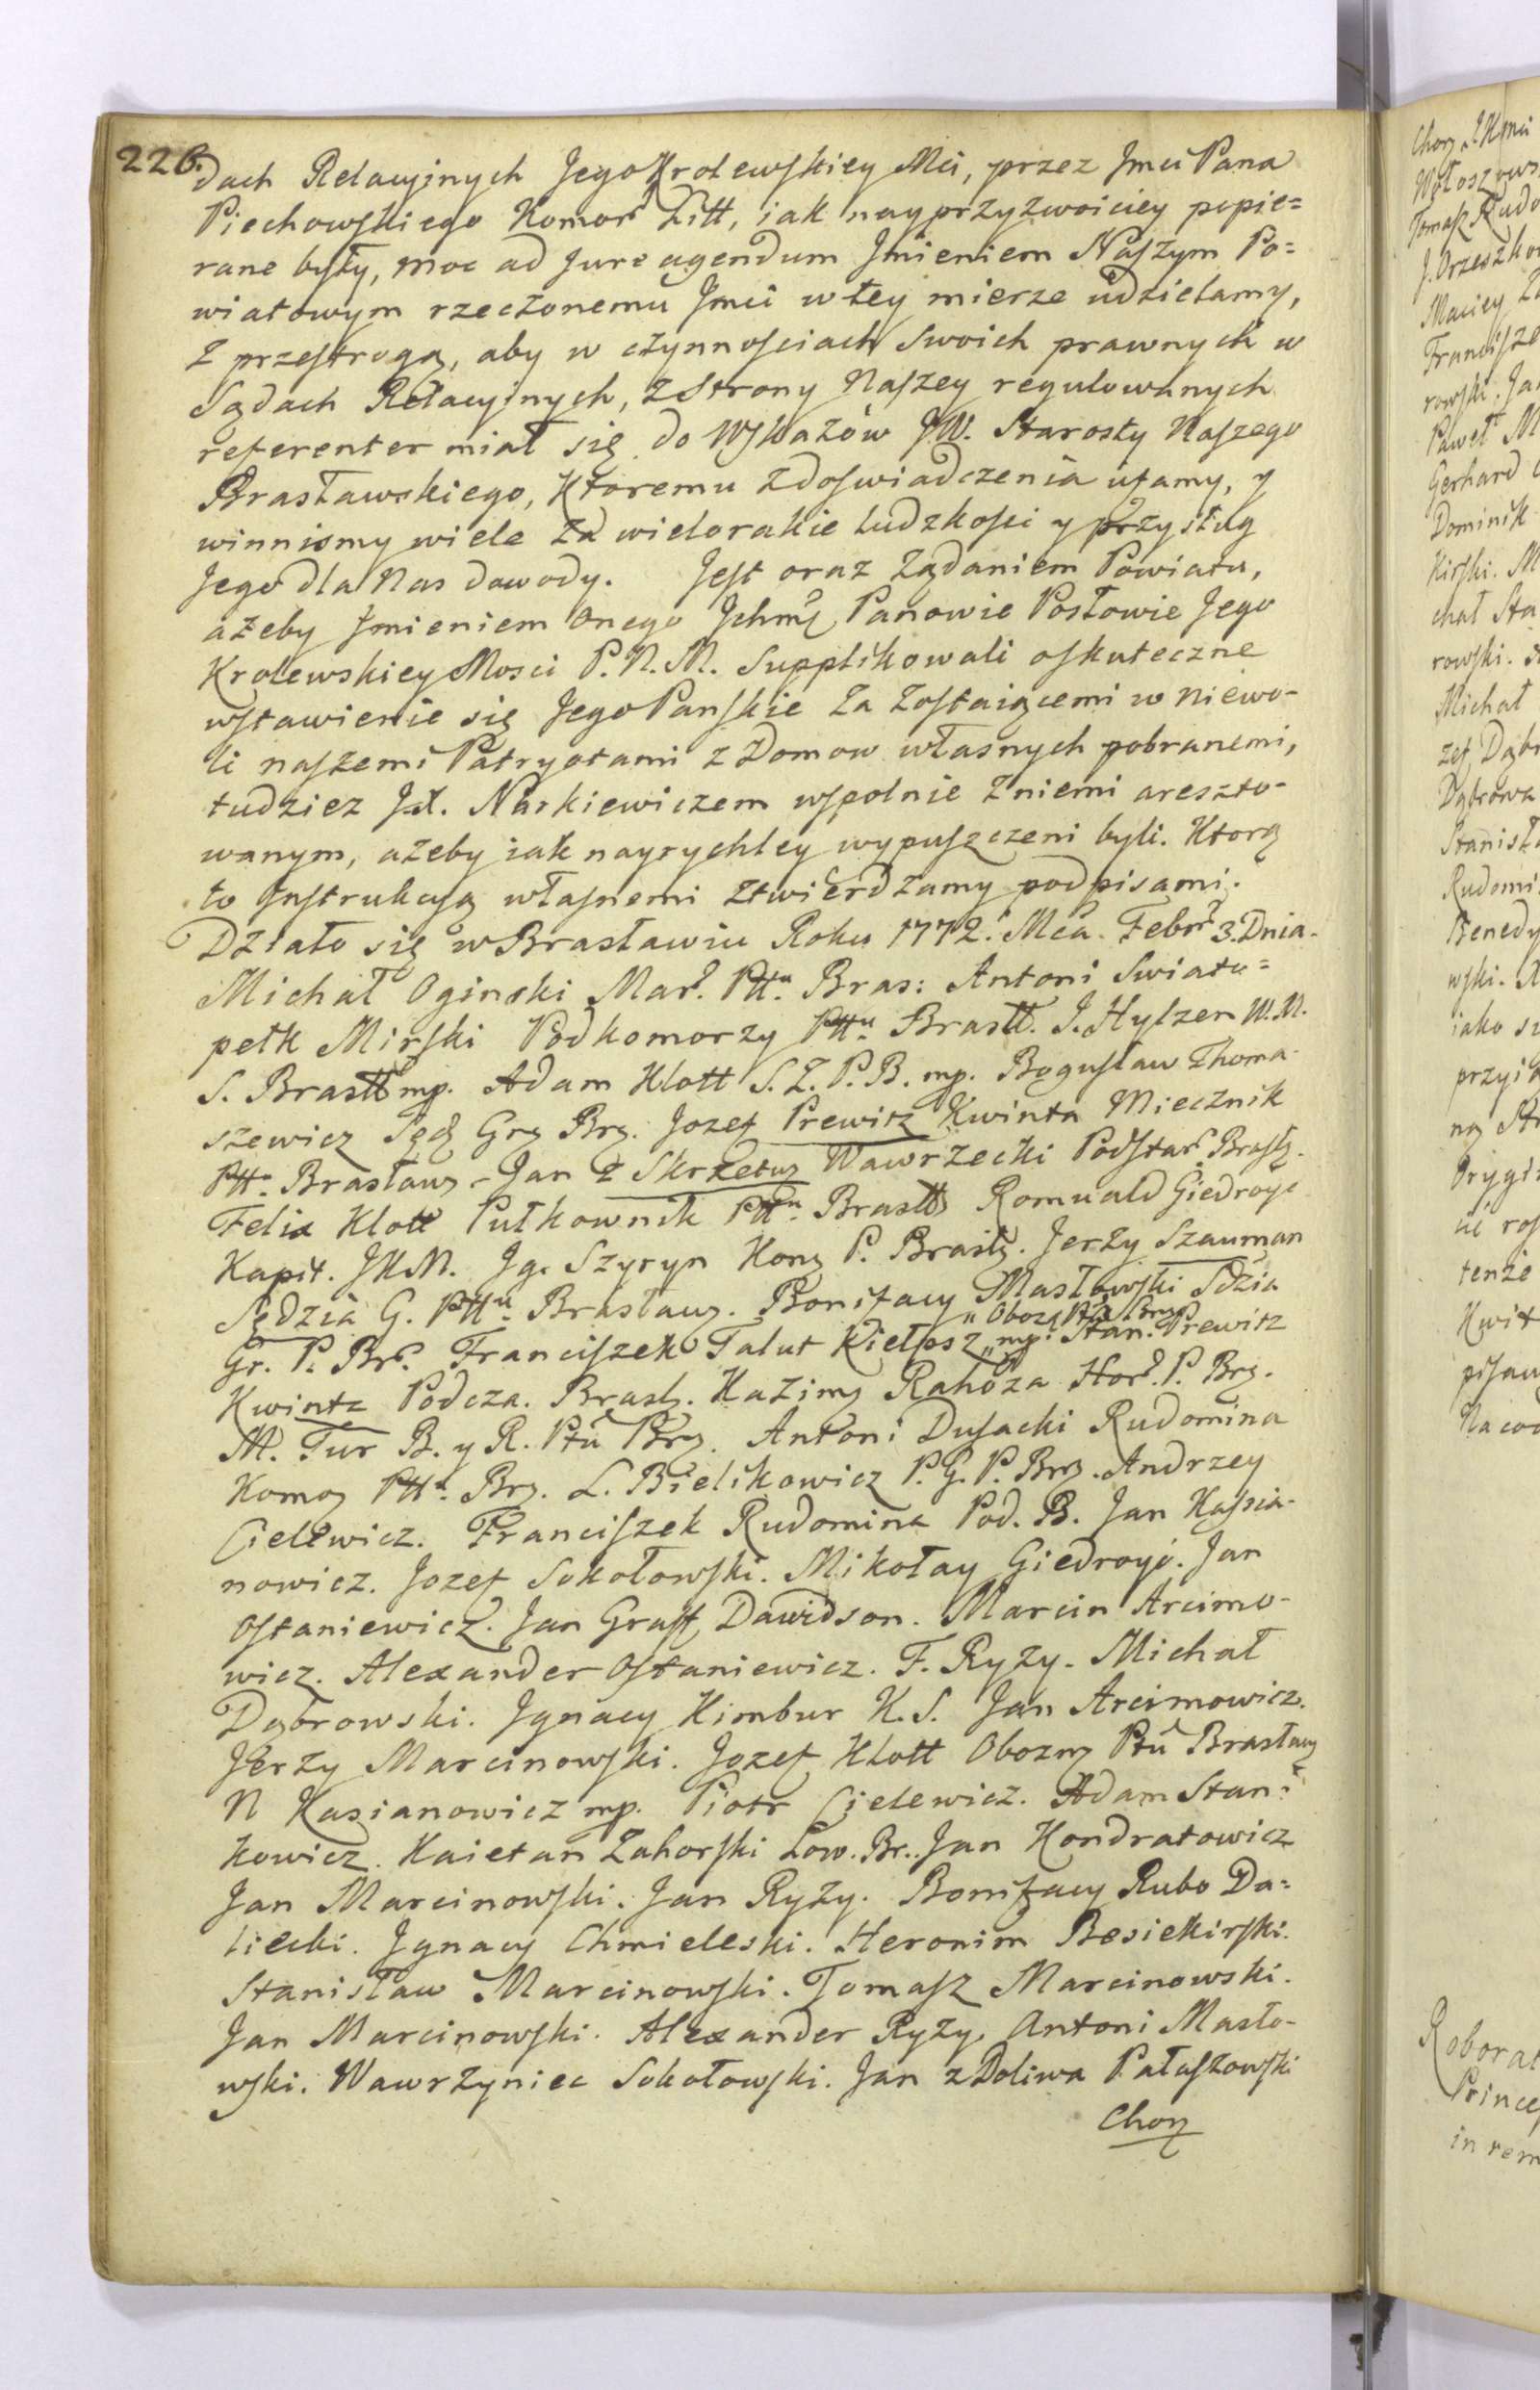 226.
dach Relacyinych Jego Krolewskiey Mci, przez Jmci Pana
Piechowskiego Komor Litt, iak nayprzyzwoiciey popie=
rane były, moc ad Jure agendum Jmieniem Naszym Po=
wiatowym rzeczonemu Jmci w tey mierze udzielamy,
z przestrogą, aby w czynnosciach Swoich prawnych w
Sądach Relacyinych, z Strony Naszey regulowanych
referenter miał się do Wskazów JW. Starosty Naszego
Brasławskiego, Ktoremu z doswiadczenia ufamy, y
winnismy wiele za wielorakie ludzkosci y przysług
Jego dla Nas dowody. Jest oraz Ządaniem Powiatu,
azeby Jmieniem Onego Jchmę Panowie Posłowie Jego
Krolewskiey Mosci P. N. M. Supplikowali o skuteczne
wstawienie się Jego Panskie Za Zostaiącemi w niewo-
li naszemi Patryotami z Domow własnych pobranemi,
tudziez Narkiewiczem wspolnie z niemi areszto-
wanym, azeby iak nayrychley wypuszczeni byli. Ktorą
to Jnstrukcyą własnemi ztwierdzamy podpisami.
Działo się w Brasławiu Roku 1772. Mca Febr 3. Dnia.
Michał Oginski Mar. Pttu Bras: Antoni Swiato=
pełk Mirski Podkomorzy Pttu Brastt. J. Hylzen W. M.
S. Brastt mp. Adam Klott S. Z. P. B. mp. Bogusław Thoma-
szewicz Sędz Grg Brg. Jozef Prewitz Kwinta Miecznik
Ptt. Brasławg. Jan z Skrzetuz Wawrzecki Podstar Brasłg.
Felix Klott Pułkownik Pttu Brastt Romuald Giedroyć
Kapit. JKM. Jg. Szyryn Kong P. Brasłg. Jerzy Szauman
Sędzia G. Pttu Brasławg. Bonifacy Masłowski Sdzia
Gr. P. Br. Franciszek Talut Kiełpsz „mp. Stan. Prewitz
„Oboz Ptu Brg
Kwinta Podcza. Brasłg. Kazimg Rahoza Hor. P. Brg.
M. Tur B. y R. Ptu Brg. Antoni Dusacki Rudomina
Komog Pttu. Brg. L. Bielikowicz P. G. P. Brg. Andrzey
Cielewicz. Franciszek Rudomina Pod. B. Jan Kassia-
nowicz. Jozef Sokołowski. Mikołay Giedroyć. Jan
Ostaniewicz. Jan Graff Dawidson. Marcin Arcimo-
wicz. Alexander Ostaniewicz. F. Ryzy. Michał
Dąbrowski. Jgnacy Kimbur K. S. Jan Arcimowicz.
Jerzy Marcinowski. Jozef Klott Obozny Ptu Brasławg
N Kasianowicz mp. Piotr Cielewicz. Adam Stani
kowicz. Kaietan Zahorski Łow. Br. Jan Kondratowicz
Jan Marcinowski. Jan Ryzy. Bonifacy Rubo Da=
liecki. Jgnacy Chmieleski. Heronim Besiekirski.
Stanisław Marcinowski. Tomasz Marcinowski.
Jan Marcinowski. Alexander Ryzy. Antoni Masło-
wski. Wawrzyniec Sokołowski. Jan z Doliwa Pałaszowski
Chorz